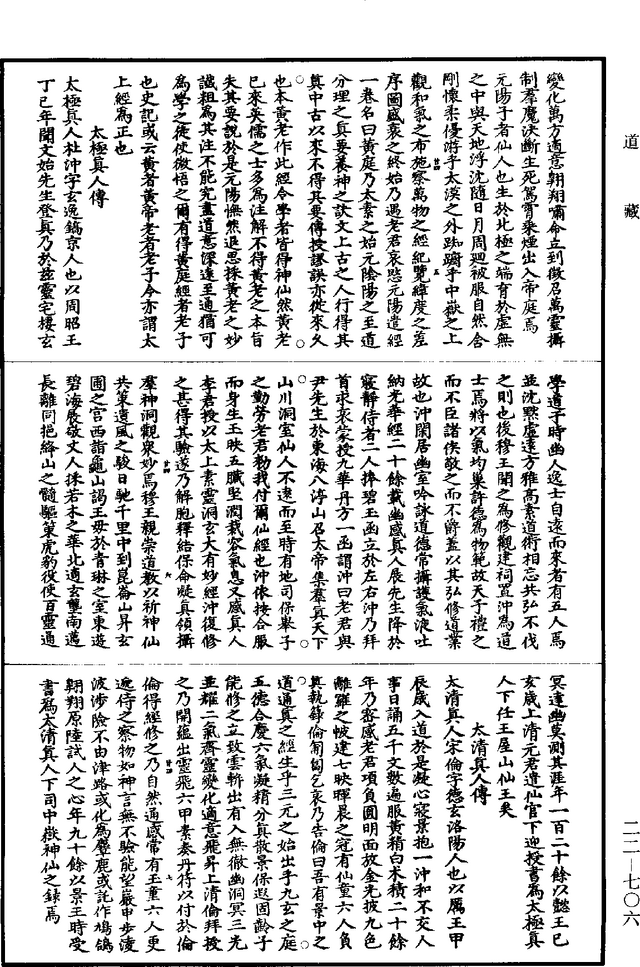 道藏
二二—七〇六
變化萬方適意翺翔嘯命立到徵召萬靈攝
制羣魔決斷生死駕霄乘煙出入帝庭焉
元陽子者仙人也生於北極之端育於虛無
之中與天地浮沈隨日月周迴被服自然含
剛懷柔優游乎太漠之外踟躕乎中嶽之上
觀和氣之布施察萬物之經紀覽緯度之差
序圖盛衰之終始乃遇老君哀愍元陽遣經
一卷名曰黃庭乃太素之始元陰陽之至道
分理之真要養神之訣文上古之人行得其
真中古以來不得其要傳授謬誤亦從來久
也本黃老作此經令學者皆得神仙然黃老
已來英儒之士多為注解不得黃老之本旨
失其要說於是元陽憮然退思採黃老之妙
識粗為其注不能究盡道意深遠至通猶可
為學之徒使微悟之爾有得黃庭經者老子
也史記或云黃者黃帝老者老子今亦謂太
上經為正也
太極真人傳
太極真人杜沖字玄逸鎬京人也以周昭王
丁巳年聞文始先生登真乃於茲靈宅樓玄
學道子時幽人逸士自遠而來者有五人焉
並沈默虛遠方雅高素道術相忘共弘不伐
之則也後穆王聞之為修觀建祠置沖為道
士焉將以氣均巢許德為物範故天子禮之
而不臣諸侯敬之而不爵蓋以其弘修道業
故也沖閑居幽室吟詠道德常攝護氣液吐
納光華經二十餘載幽感真人展先生降於
寢靜侍者二人捧碧玉函立於左右沖乃拜
首求哀蒙授九華丹方一函謂沖曰老君與
尹先生於東海八渟山召太帝集羣真天下
山川洞室仙人不遠而至時有地司保舉子
之勤勞老君勑我付爾仙經也沖依按合服
而身生玉映五臟堅潤栽容氣息又感真人
李君授以太上素靈洞玄大有妙經沖復修
之甚得其驗遂乃解胞釋結保侖凝真領攝
羣神洞觀衆妙焉穆王親崇道教以祈神仙
共策遺風之駿日馳千里中到崑崙山昇玄
圃之宮西詣龜山謁王母於青琳之室東遊
碧海展敬丈人採若木之華北適玄壟南邁
長離同挹絳山之髓驅策虎豹役使百靈通
冥達幽莫測其涯年一百二十餘以懿王己
亥歲上清元君遣仙官下迎授書為太極真
人下任王屋山仙王矣
太清真人傳
太清真人宋倫字德玄洛陽人也以厲王甲
辰歲入道於是凝心寂景抱一沖和不交人
事日誦五千文數遍服黃精白朮積二十餘
年乃密感老君項負圓明面放金光披九色
離羅之帔建七映暉晨之冠有仙童六人負
真執籙倫匍匐乞哀乃告倫曰吾有景中之
道通真之經生乎三元之始出乎九玄之庭
五德合慶六氣凝精分真散景保遐固齡子
能修之立致雲輧出有入無徹幽洞冥三光
並耀二氣齊靈變化適意飛昇上清倫拜授
之乃開蘊出靈飛六甲素奏丹符以付於倫
倫得經修之乃自然通感常有玉童六人更
遞侍之察物如神言無不驗能望巖申步淩
波涉險不由津路或化為麞鹿或託作鳩鴿
翺翔原陸試人之心年九十餘以景王時受
書為太清真人下司中嶽神仙之錄焉